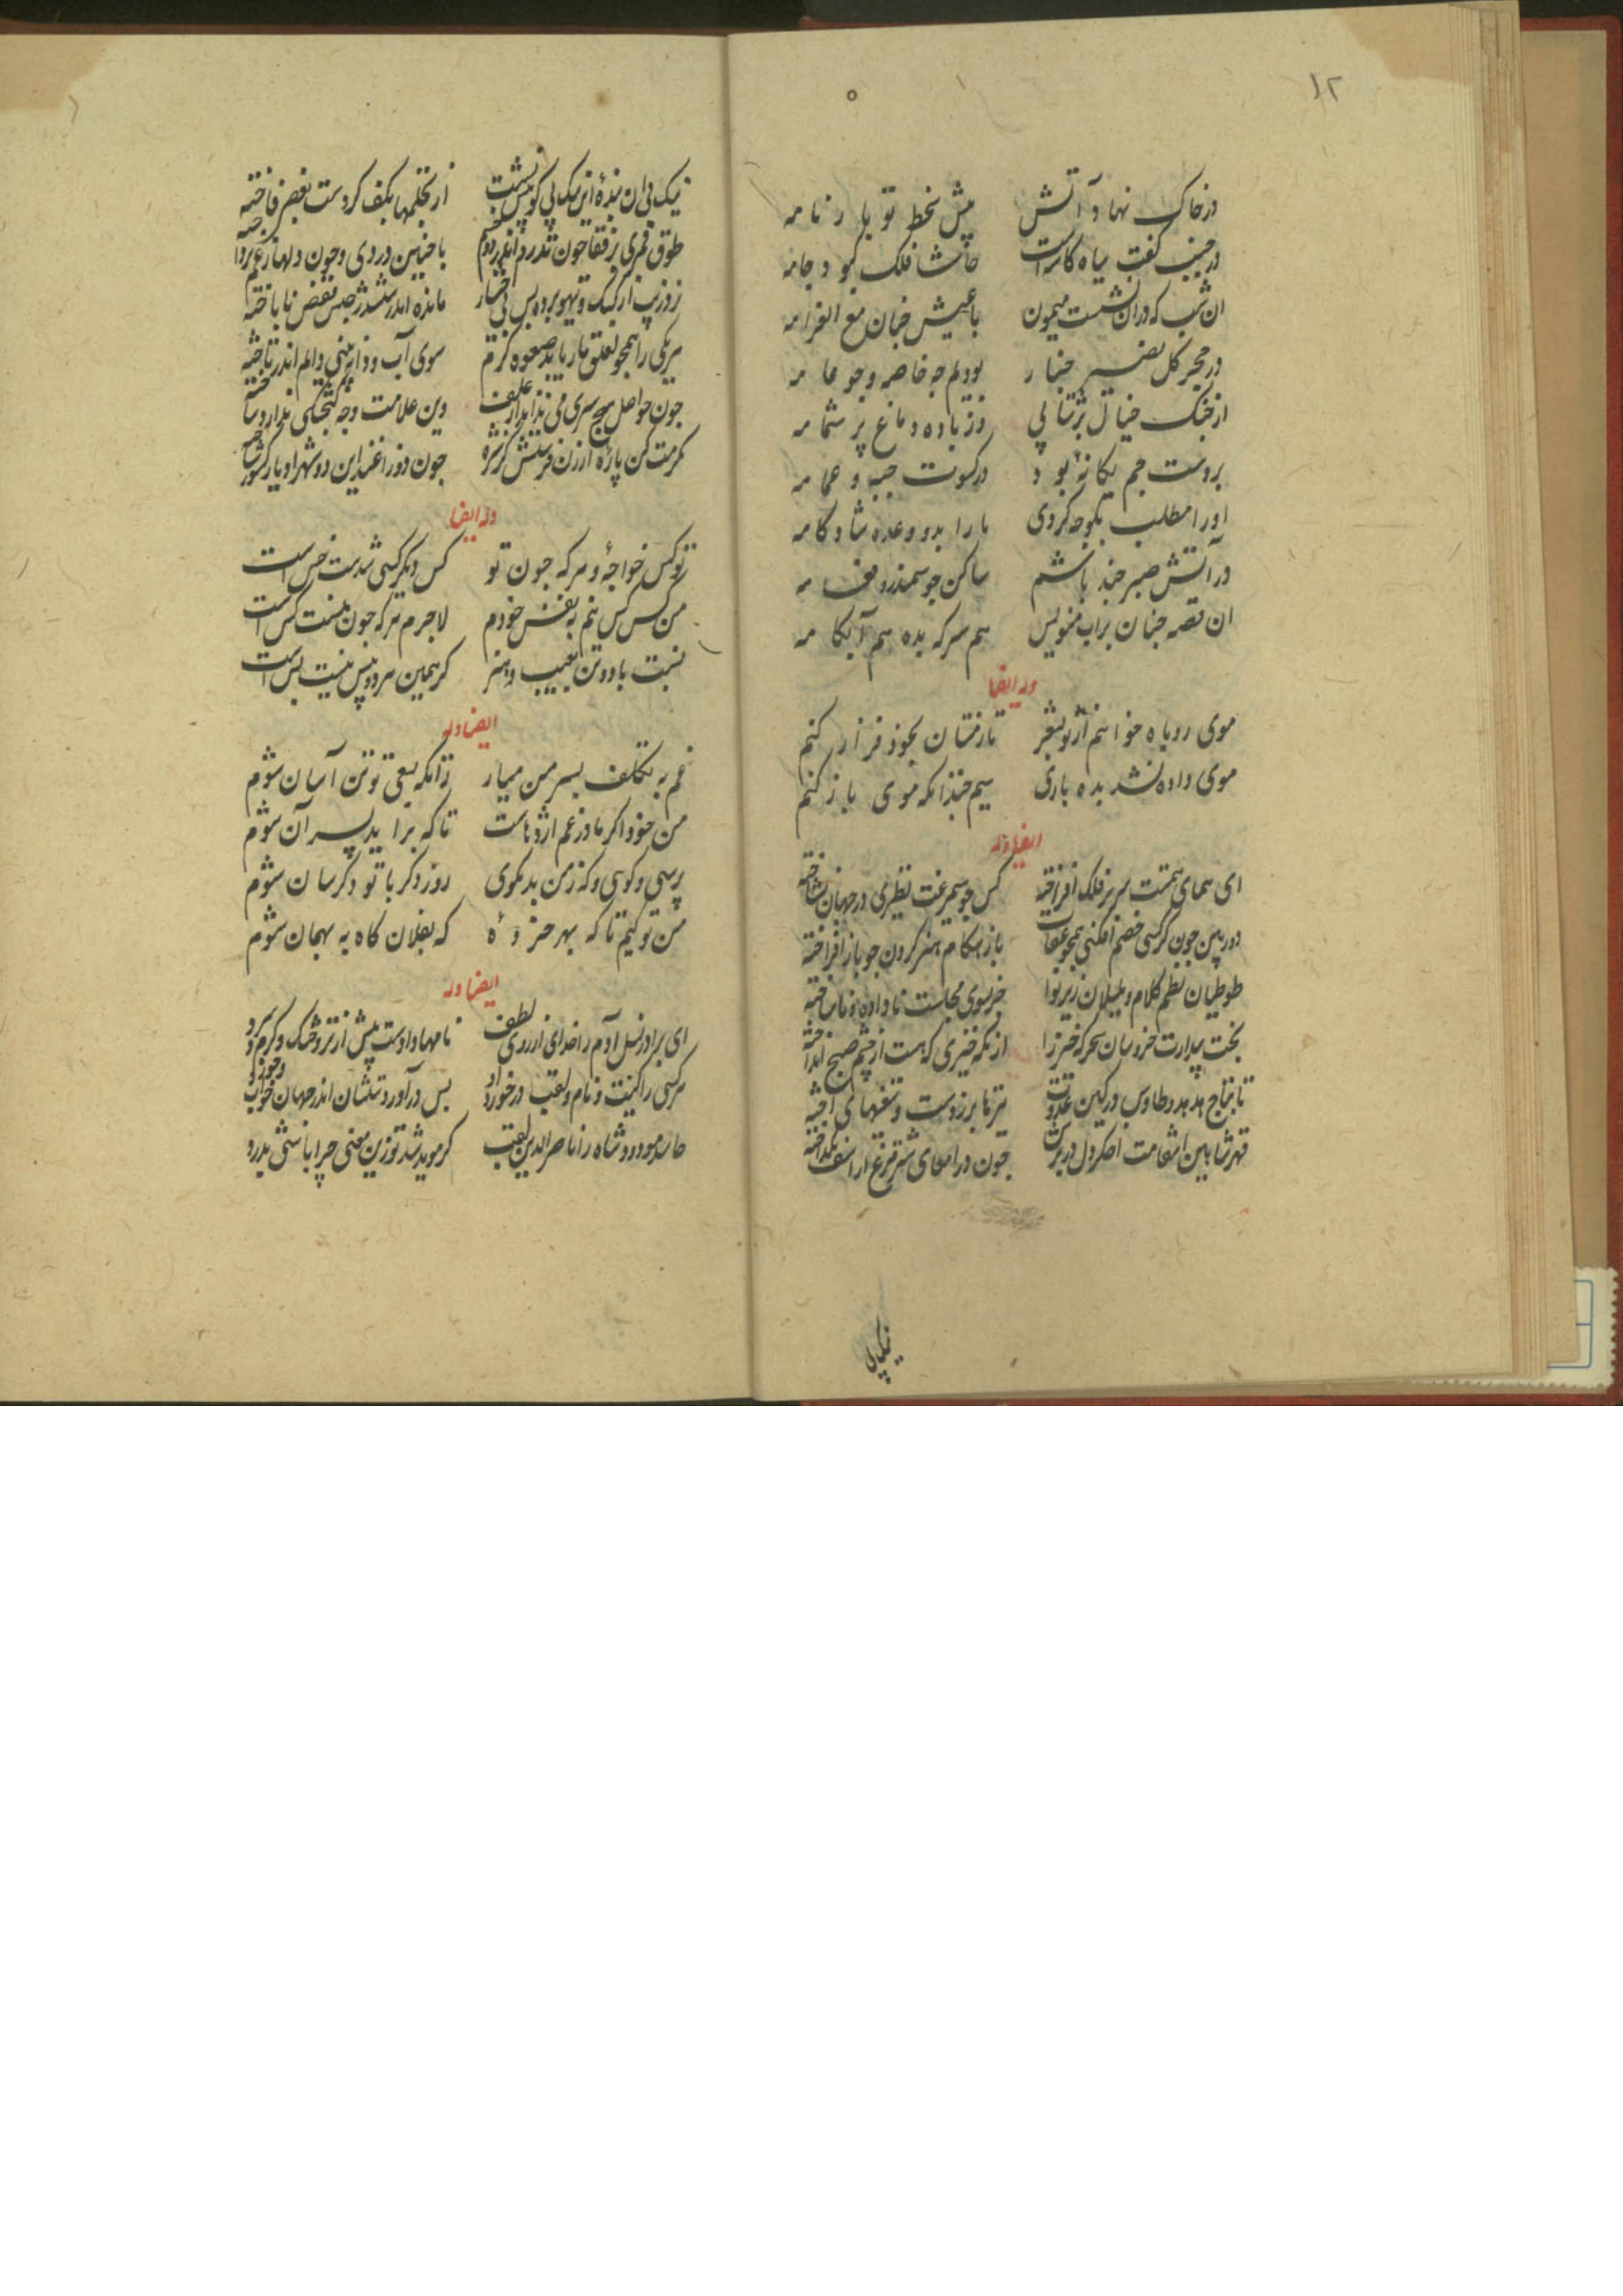 ۱۲
در خاک نهاد آتش پیش خط تو یار نامه
در جنب کفت سیاه کاسه است حاشا فلک کبود جامه
ان شب که در ان نشست میمون با عیش جنان مع الغرامه
در مجمر کل بودیم جه خاصه و جو عامه
از خنک خیال وز باده دماغ پر شمامه
بر دست جم یکانهٔ بود در کسوت جبه و عمامه
اورا مطلب بکوجه کردی ما را بدو وعده شادکامه
در آتش صبر جند باشم ساکن جو سمندر و نعامه
ان قصه جنان بر اب منویس هم سرکه بده هم آبکامه
وله ایضا
موی روباه خواستم از تو بشعر تا زمستان بخود فراز کنم
موی داده نشد بده باری سیم جندانکه موی باز کنم
ایضا وله
ای همای همتت سر بر فلک افراخته کس جو سیمرغت نظیری در جهان نشناخته
دوربین جون کرکسی خصم افکنی همجو عقاب باز هنکام هنر کردن جو باز افراخته
طوطیان نظم کلام و بلبلان زیر نوا جز بسوی مجلست ناداده و ناساخته
بخت بیدارت خروسان سحرکه خیز را از نکه خیزی که هست از چشم صبح انداخته
تا بتاج هدهد و طاوس در کین عدوت تیرها بر زدست و تیغهای آخته
قهر شاهین انتقامت اصکر دل در برش جون در امعای شترمرغ اراسف بکداخته
نیک پی
نیک پی ان بندهٔ این نیک پی کو پیش نشست از تکلمها بکف کردست بغض فاخته
طوق قمری بر قفا جون تذرو اندر دم با جنین دردی و جون دلها زغم پرداخته
روز شب از کبک و تیهو برده بس بی اختیار مانده اندر ششدر حبس قفض نا باخته
هر یکی را همجو لقلق مار باید صعوه کرم سوی آب و دانه بینی دایم اندر تاخته
جون حواصل هیج سیری می نداند از علف وین علامت وجه کنجشکی ندارد ساخته
مکرمت کن پاره ارزن فرستش کز شره جون دو زاغند این دو شهر او یار کشور تاخته
وله ایضا
تو کس خواجهٔ و هر که جون تو کس دیکر کسی شدست خس است
من کس کس نیم به نفس خودم لاجرم هر که جون منست کس است
نسبت ما دو تن بعیب و هنر کر همین هر دو بیش نیست بس است
ایضا وله
غم به تکلف بسر من میار زانکه بسعی تو تن آسان شوم
من خود اکر مادر غم اژدهاست تا که برآید پسر آن شوم
پرسی و کوسی و که زمن بد مکوی روز دکر با تو دکرسان شوم
من تو کیم تا که بهر خر دهٔ که بفلان کاه به بهمان شوم
ایضا وله
ای برادر نسل آدم را خدای از روی لطف نامها دادست بیش از تر و خشک و کرم و سرد
هر کسی را کنیت و نام و لقب در خورد او بس در آورد ستشان اندر جهان خواب و خورد
حاسد مودود شاه را ناصر الدین لقب کر موید شد تو زین معنی چرا باشی بدرد